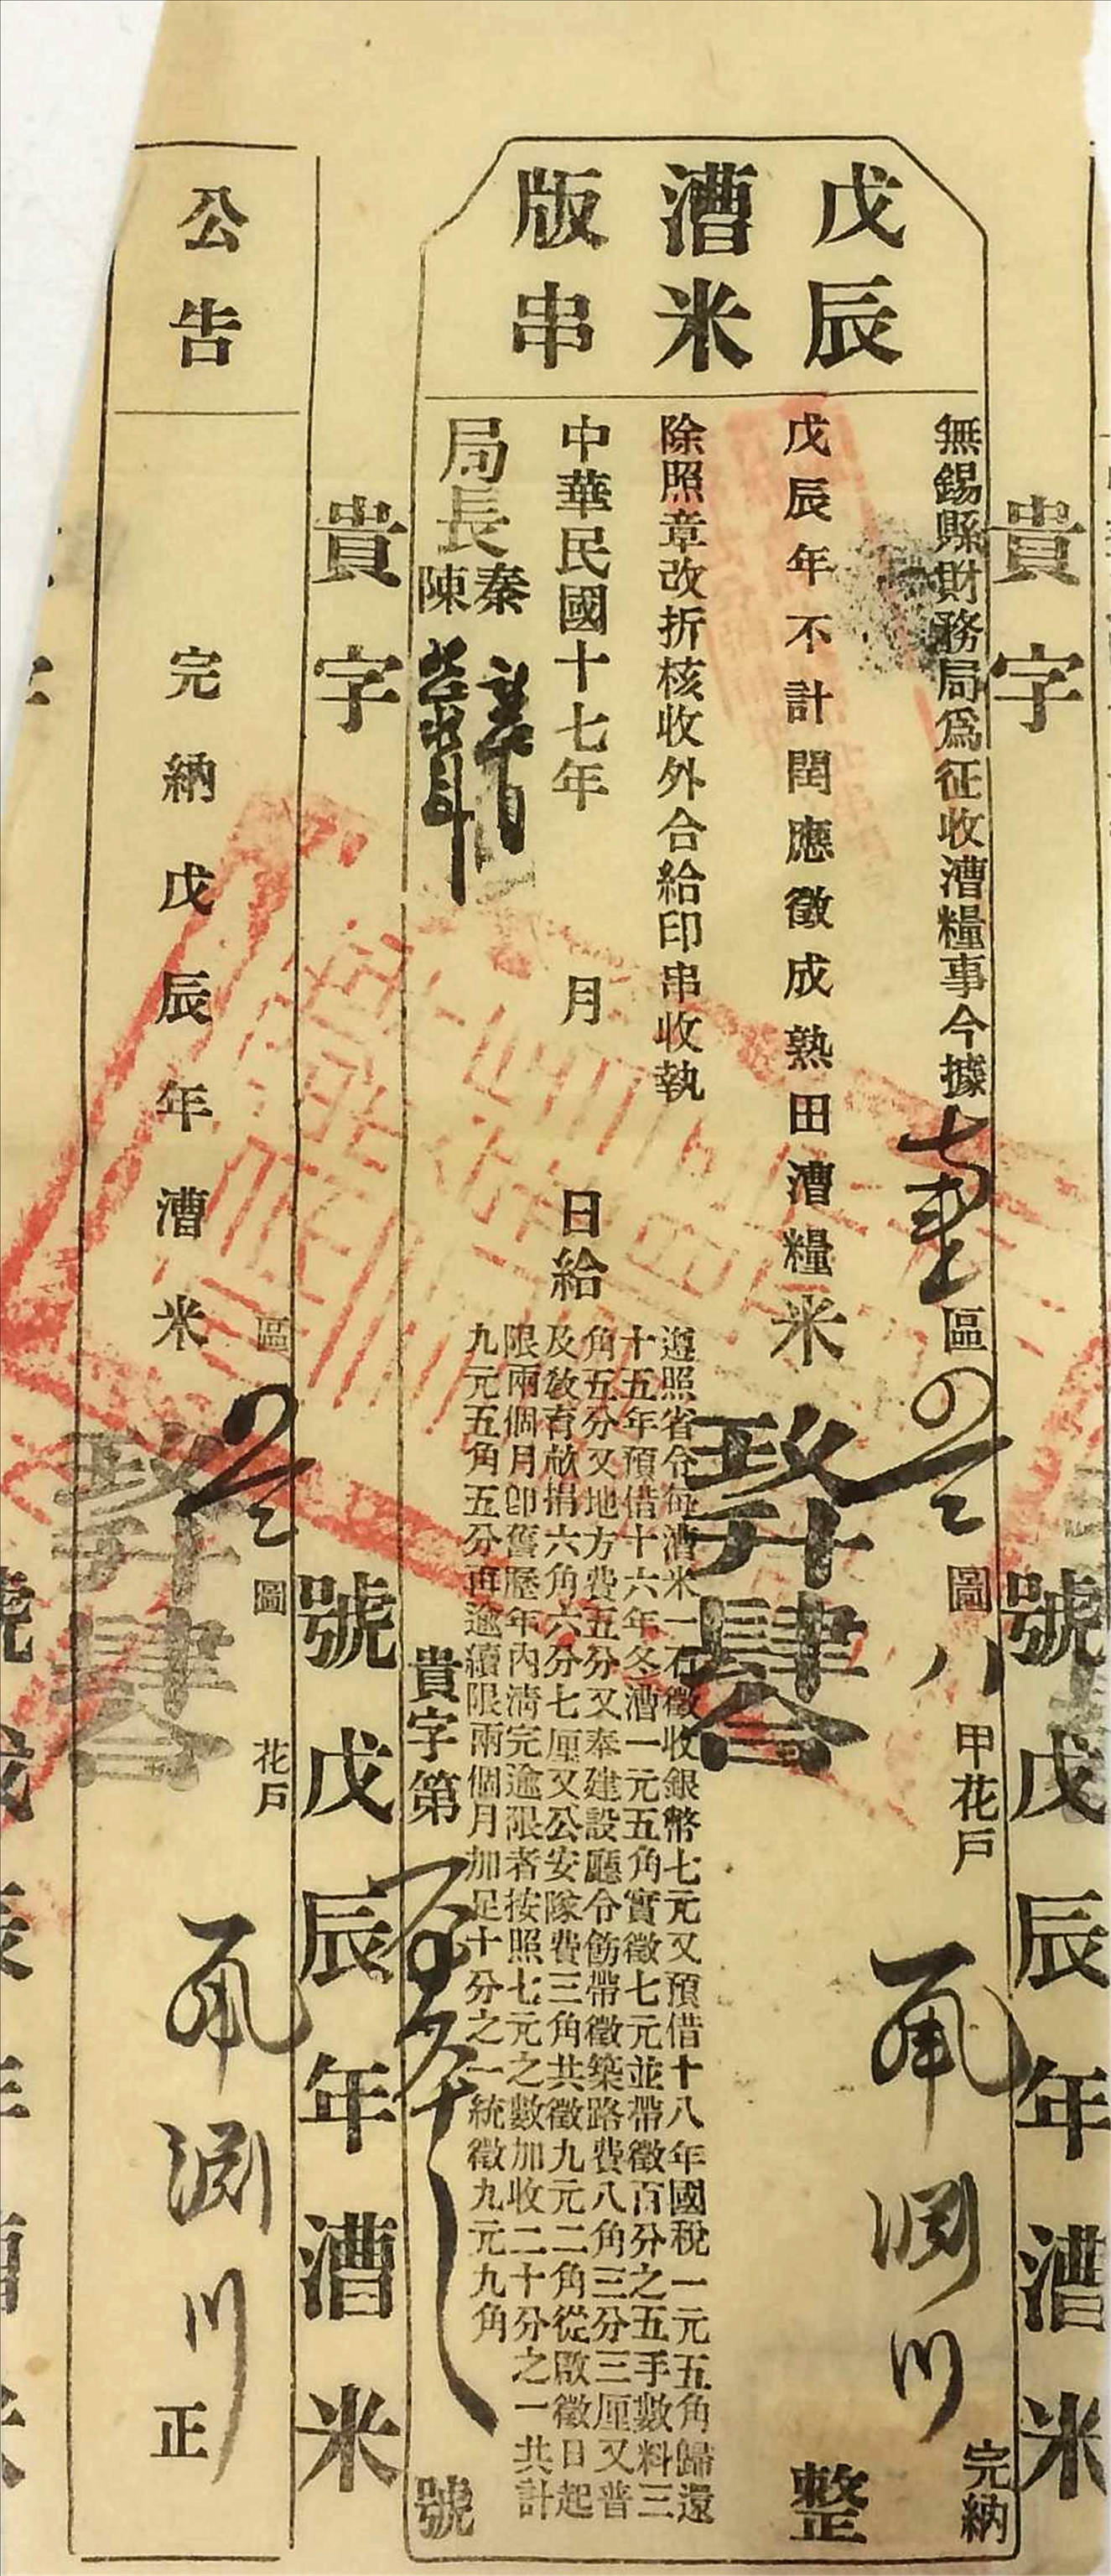 戊辰
漕米
版串
貴字
號戊辰年漕米
無錫縣財務局爲征收漕糧事今據
區
圖八甲花戶
淵川完納
戊辰年不計閏應徵成熟田漕糧米玖升肆合整
除照章改折核收外合給印串收執
遵照省令每漕米一石徵收銀幣七元又預借十八年國稅一元五角歸還
十五年預借十六年冬漕一元五角實徵七元並帶徵百分之五手數料三
角五分又地方費五分又奉建設廳令飭帶徵築路費八角三分三厘又普
及敎育畝捐六角六分七厘又公安隊費三角共徵九元二角從啟徵日起
限兩個月卽舊歷年內清完逾限者按照七元之數加收二十分之一共計
九元五角五分再逾續限兩個月加足十分之一統徵九元九角
中華民國十七年 月 日給
局長秦
陳
貴字第
號
貴字
號戊辰年漕米
公告
區
圖
花戶
完納戊辰年漕米玖升肆合
淵川
正